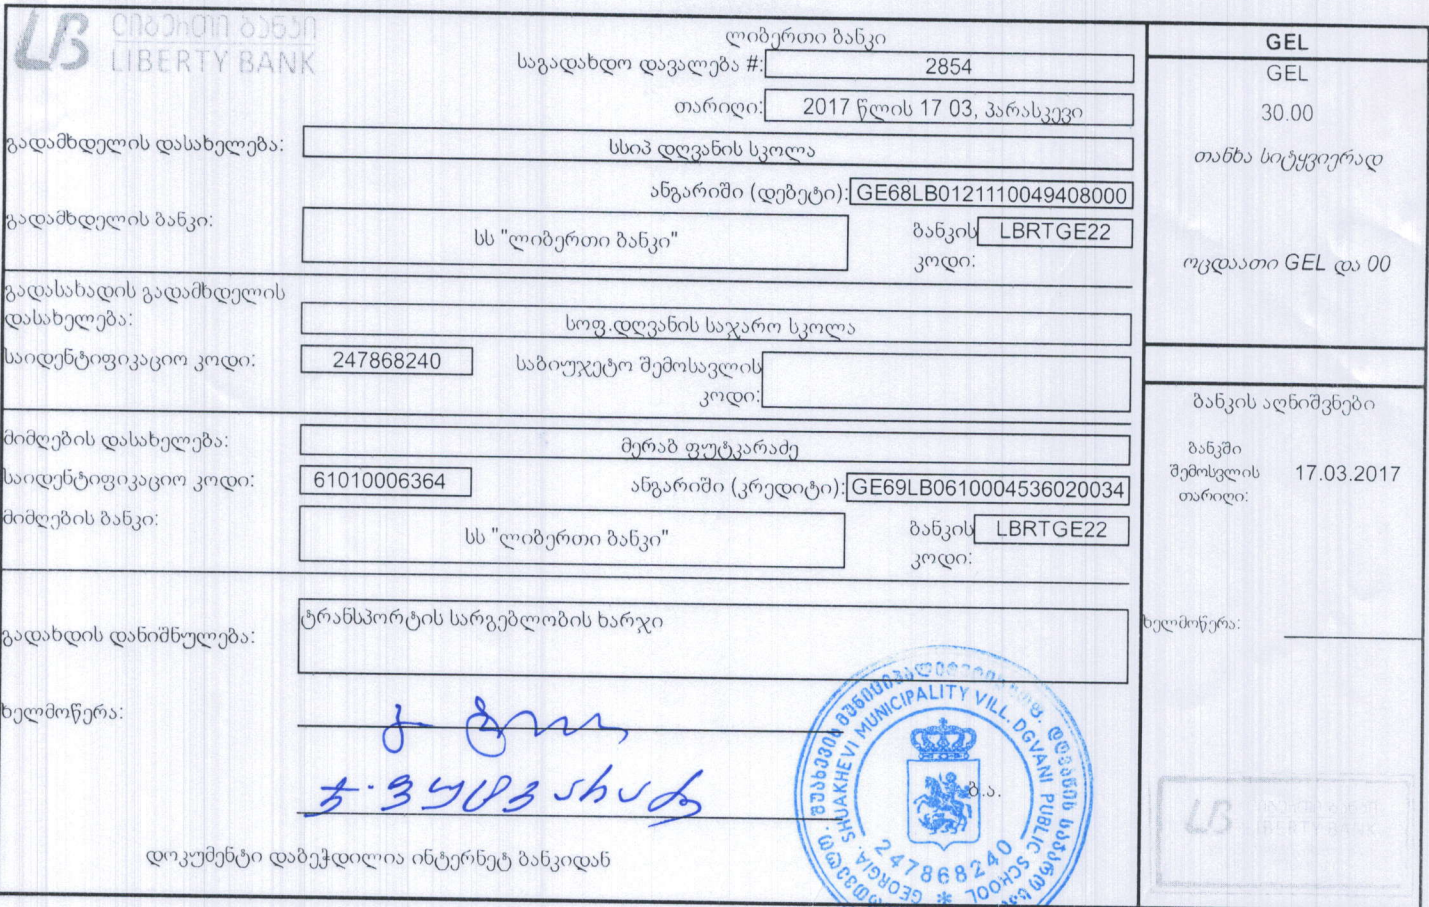 ლიბერთი ბანკი
LIBERTY BANK
ლიბერთი ბანკი
საგადახდო დავალება #: 2854
თარიღი: 2017 წლის 17 03, პარასკევი
გადამხდელის დასახელება: სსიპ დღვანის სკოლა
ანგარიში (დებეტი): GE68LB0121110049408000
გადამხდელის ბანკი: სს "ლიბერთი ბანკი" ბანკის კოდი: LBRTGE22
გადასახადის გადამხდელის
დასახელება: სოფ.დღვანის საჯარო სკოლა
საიდენტიფიკაციო კოდი: 247868240 საბიუჯეტო შემოსავლის
კოდი:
მიმღების დასახელება: მერაბ ფუტკარაძე
საიდენტიფიკაციო კოდი: 61010006364 ანგარიში (კრედიტი): GE69LB0610004536020034
მიმღების ბანკი: სს "ლიბერთი ბანკი" ბანკის კოდი: LBRTGE22
გადახდის დანიშნულება: ტრანსპორტის სარგებლობის ხარჯი
ხელმოწერა:
ბ.ა.
დოკუმენტი დაბეჭდილია ინტერნეტ ბანკიდან
GEL
GEL
30.00
თანხა სიტყვიერად
ოცდაათი GEL და 00
ბანკის აღნიშვნები
ბანკში
შემოსვლის 17.03.2017
თარიღი:
ხელმოწერა:
LIBERTY BANK
GEORGIA. SHUAKHEVI MUNICIPALITY VILL. DGVANI PUBLIC SCHOOL
247868240